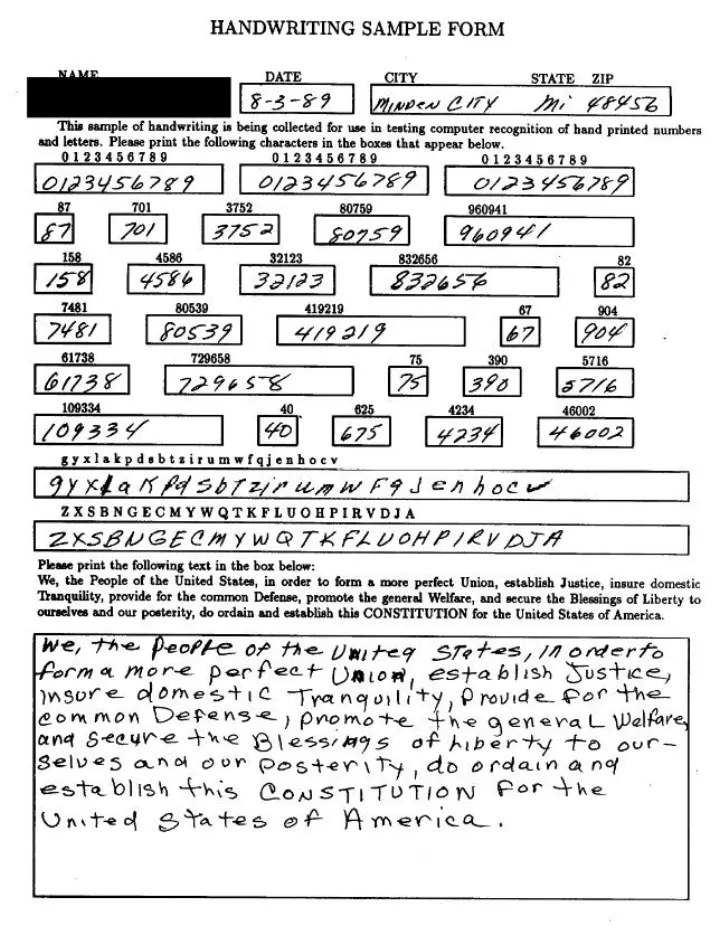 HANDWRITING SAMPLE FORM
NAME DATE CITY STATE ZIP
8-3-89 MINDEN CITY Mi 48456
This sample of handwriting is being collected for use in testing computer recognition of hand printed numbers
and letters. Please print the following characters in the boxes that appear below.
0 1 2 3 4 5 6 7 8 9 0 1 2 3 4 5 6 7 8 9 0 1 2 3 4 5 6 7 8 9
0123456789 0123456789 0123456789
87 701 3752 80759 960941
87 701 3752 80759 960941
158 4586 32123 832656 82
158 4586 32123 832656 82
7481 80539 419219 67 904
7481 80539 419219 67 904
61738 729658 75 390 5716
61738 729658 75 390 5716
109334 40 625 4234 46002
109334 40 675 4234 46002
g y x l a k p d s b t z i r u m w f q j e n h o c v
gyxlaKPdSbTzirumwFqJenhocv
Z X S B N G E C M Y W Q T K F L U O H P I R V D J A
ZXSBNGECMYWQTKFLUOHPIRVDJA
Please print the following text in the box below:
We, the People of the United States, in order to form a more perfect Union, establish Justice, insure domestic
Tranquility, provide for the common Defense, promote the general Welfare, and secure the Blessings of Liberty to
ourselves and our posterity, do ordain and establish this CONSTITUTION for the United States of America.
We, the PeoPLe of the United STates, in order to
form a more perfect Union, establish Justice,
insure domestic Tranquility, Provide For the
common Defense, promote the generaL Welfare,
and secure the Blessings of Liberty to our-
selves and our posteriTy, do ordain and
establish this CONSTITUTION For the
United States of America.